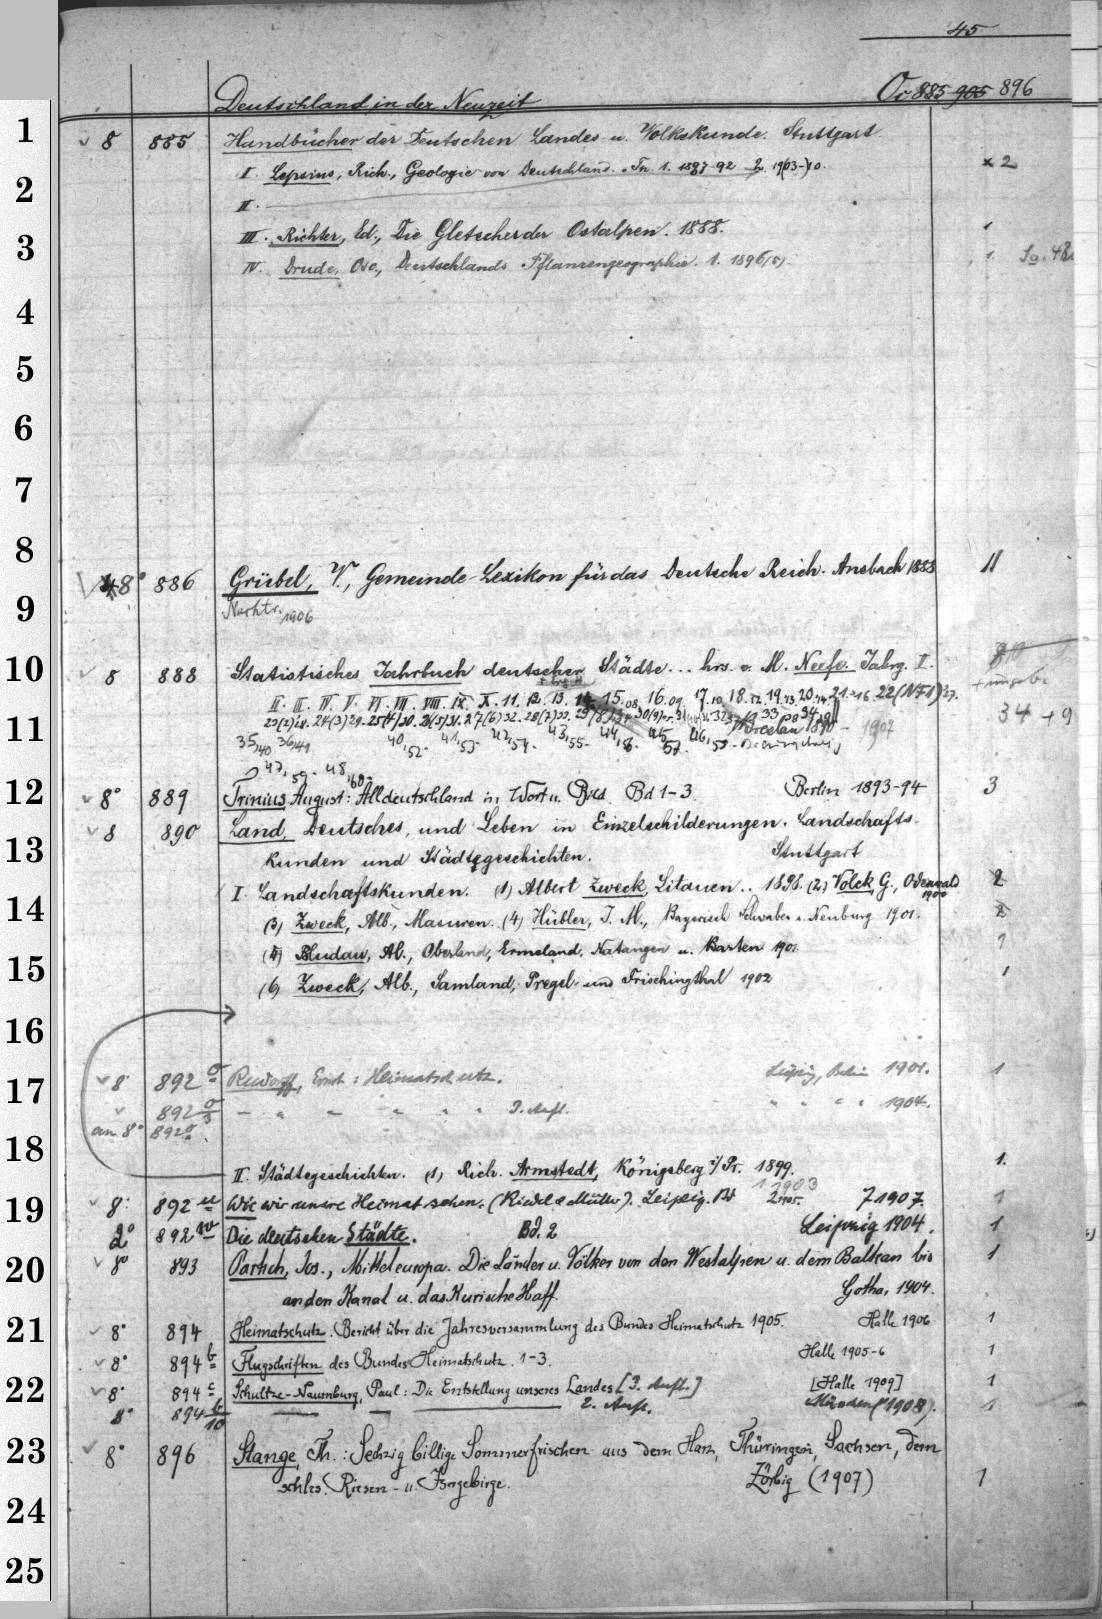 45
Deutschland in der Neuzeit Or 885-905 896
1
8 885 Handbücher der Deutschen Landes- u. Volkskunde. Stuttgart
I. Lepsius, Rich., Geologie von Deutschland. Th. 1. 1887-92 2. 19(03-)10. x 2
2
II.
3
III. Richter, Ed., Die Gletscher der Ostalpen. 1888. 1
IV. Drude, Osc., Deutschlands Pflanzengeographie. 1. 1896 1.
4
5
6
7
8
8° 886 Grübel, V., Gemeinde-Lexikon für das Deutsche Reich. Ansbach 1883 II
9
Nachtr. 1906
10
8 888 Statistisches Jahrbuch deutscher Städte... hrs. v. M. Neefe. Jahrg. I.
II. III. IV. V. VI. VII. VIII. IX. X. 11. 12. 13. 14. 15. 16. 17. 18. 19. 20. 21. 22(NF1)
11
Breslau 1890- 1907
34 + 9
12
8° 889 Trinius, August: Alldeutschland in Wort u. Bild Bd 1-3. Berlin 1893-94 3
8 890 Land, Deutsches, und Leben in Einzelschilderungen. Landschafts-
13
kunden und Städtegeschichten. Stuttgart
I. Landschaftskunden. (1) Albert Zweck, Litauen.. 1898. (2) Volck, G., Odenwald 1900 2
14
(3) Zweck, Alb., Masuren. (4) Hübler, J. M., Bayerisch Schwaben u. Neuburg 1901. 2
(5) Bludau, Al., Oberland, Ermeland, Natangen u. Barten 1901. 1
15
(6) Zweck, Alb., Samland, Pregel- und Frischingthal 1902 1
16
17
8 892 σ Rudorff, Ernst: Heimatschutz. Leipzig, Berlin 1901. 1
892 σ/3 - " " " " " 3. Aufl. " " " " 1904.
an 8° 892 σ.
18
II. Städtegeschichten. (1) Rich. Armstedt, Königsberg i/Pr. 1899. 1.
19
8° 892 u Wie wir unsre Heimat sehen. (Riedel & Müller). Leipzig. 1903 1907. 1
2° 892 w Die deutschen Städte. Bd. 2 Leipzig 1904. 1
20
8° 893 Partsch, Jos., Mitteleuropa. Die Länder u. Völker von den Westalpen u. dem Balkan bis 1
an den Kanal u. das Kurische Haff. Gotha, 1904.
21
8° 894 Heimatschutz. Bericht über die Jahresversammlung des Bundes Heimatschutz 1905. Halle 1906 1
8° 894 b Flugschriften des Bundes Heimatschutz. 1-3. Halle 1905-6 1
22
8° 894 c Schultze-Naumburg, Paul: Die Entstellung unseres Landes [3. Aufl.] [Halle 1909] 1
8° 894 b/10 2. Aufl. München (1908). 1
23
8° 896 Stange, Th.: Sechzig billige Sommerfrischen aus dem Harz, Thüringen, Sachsen, dem
schles. Riesen- u. Isergebirge. Zörbig (1907) 1
24
25